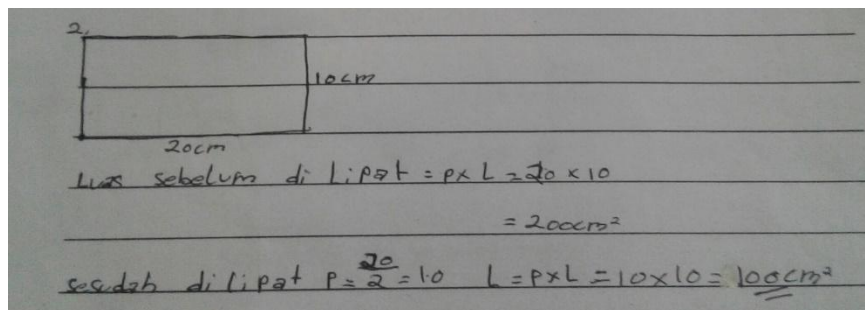 2.
10cm
20cm
Luas sebelum di Lipat = p x L = 20 x 10
= 200cm²
sesudah di lipat P = 20/2 = 10 L = p x L = 10 x 10 = 100cm²